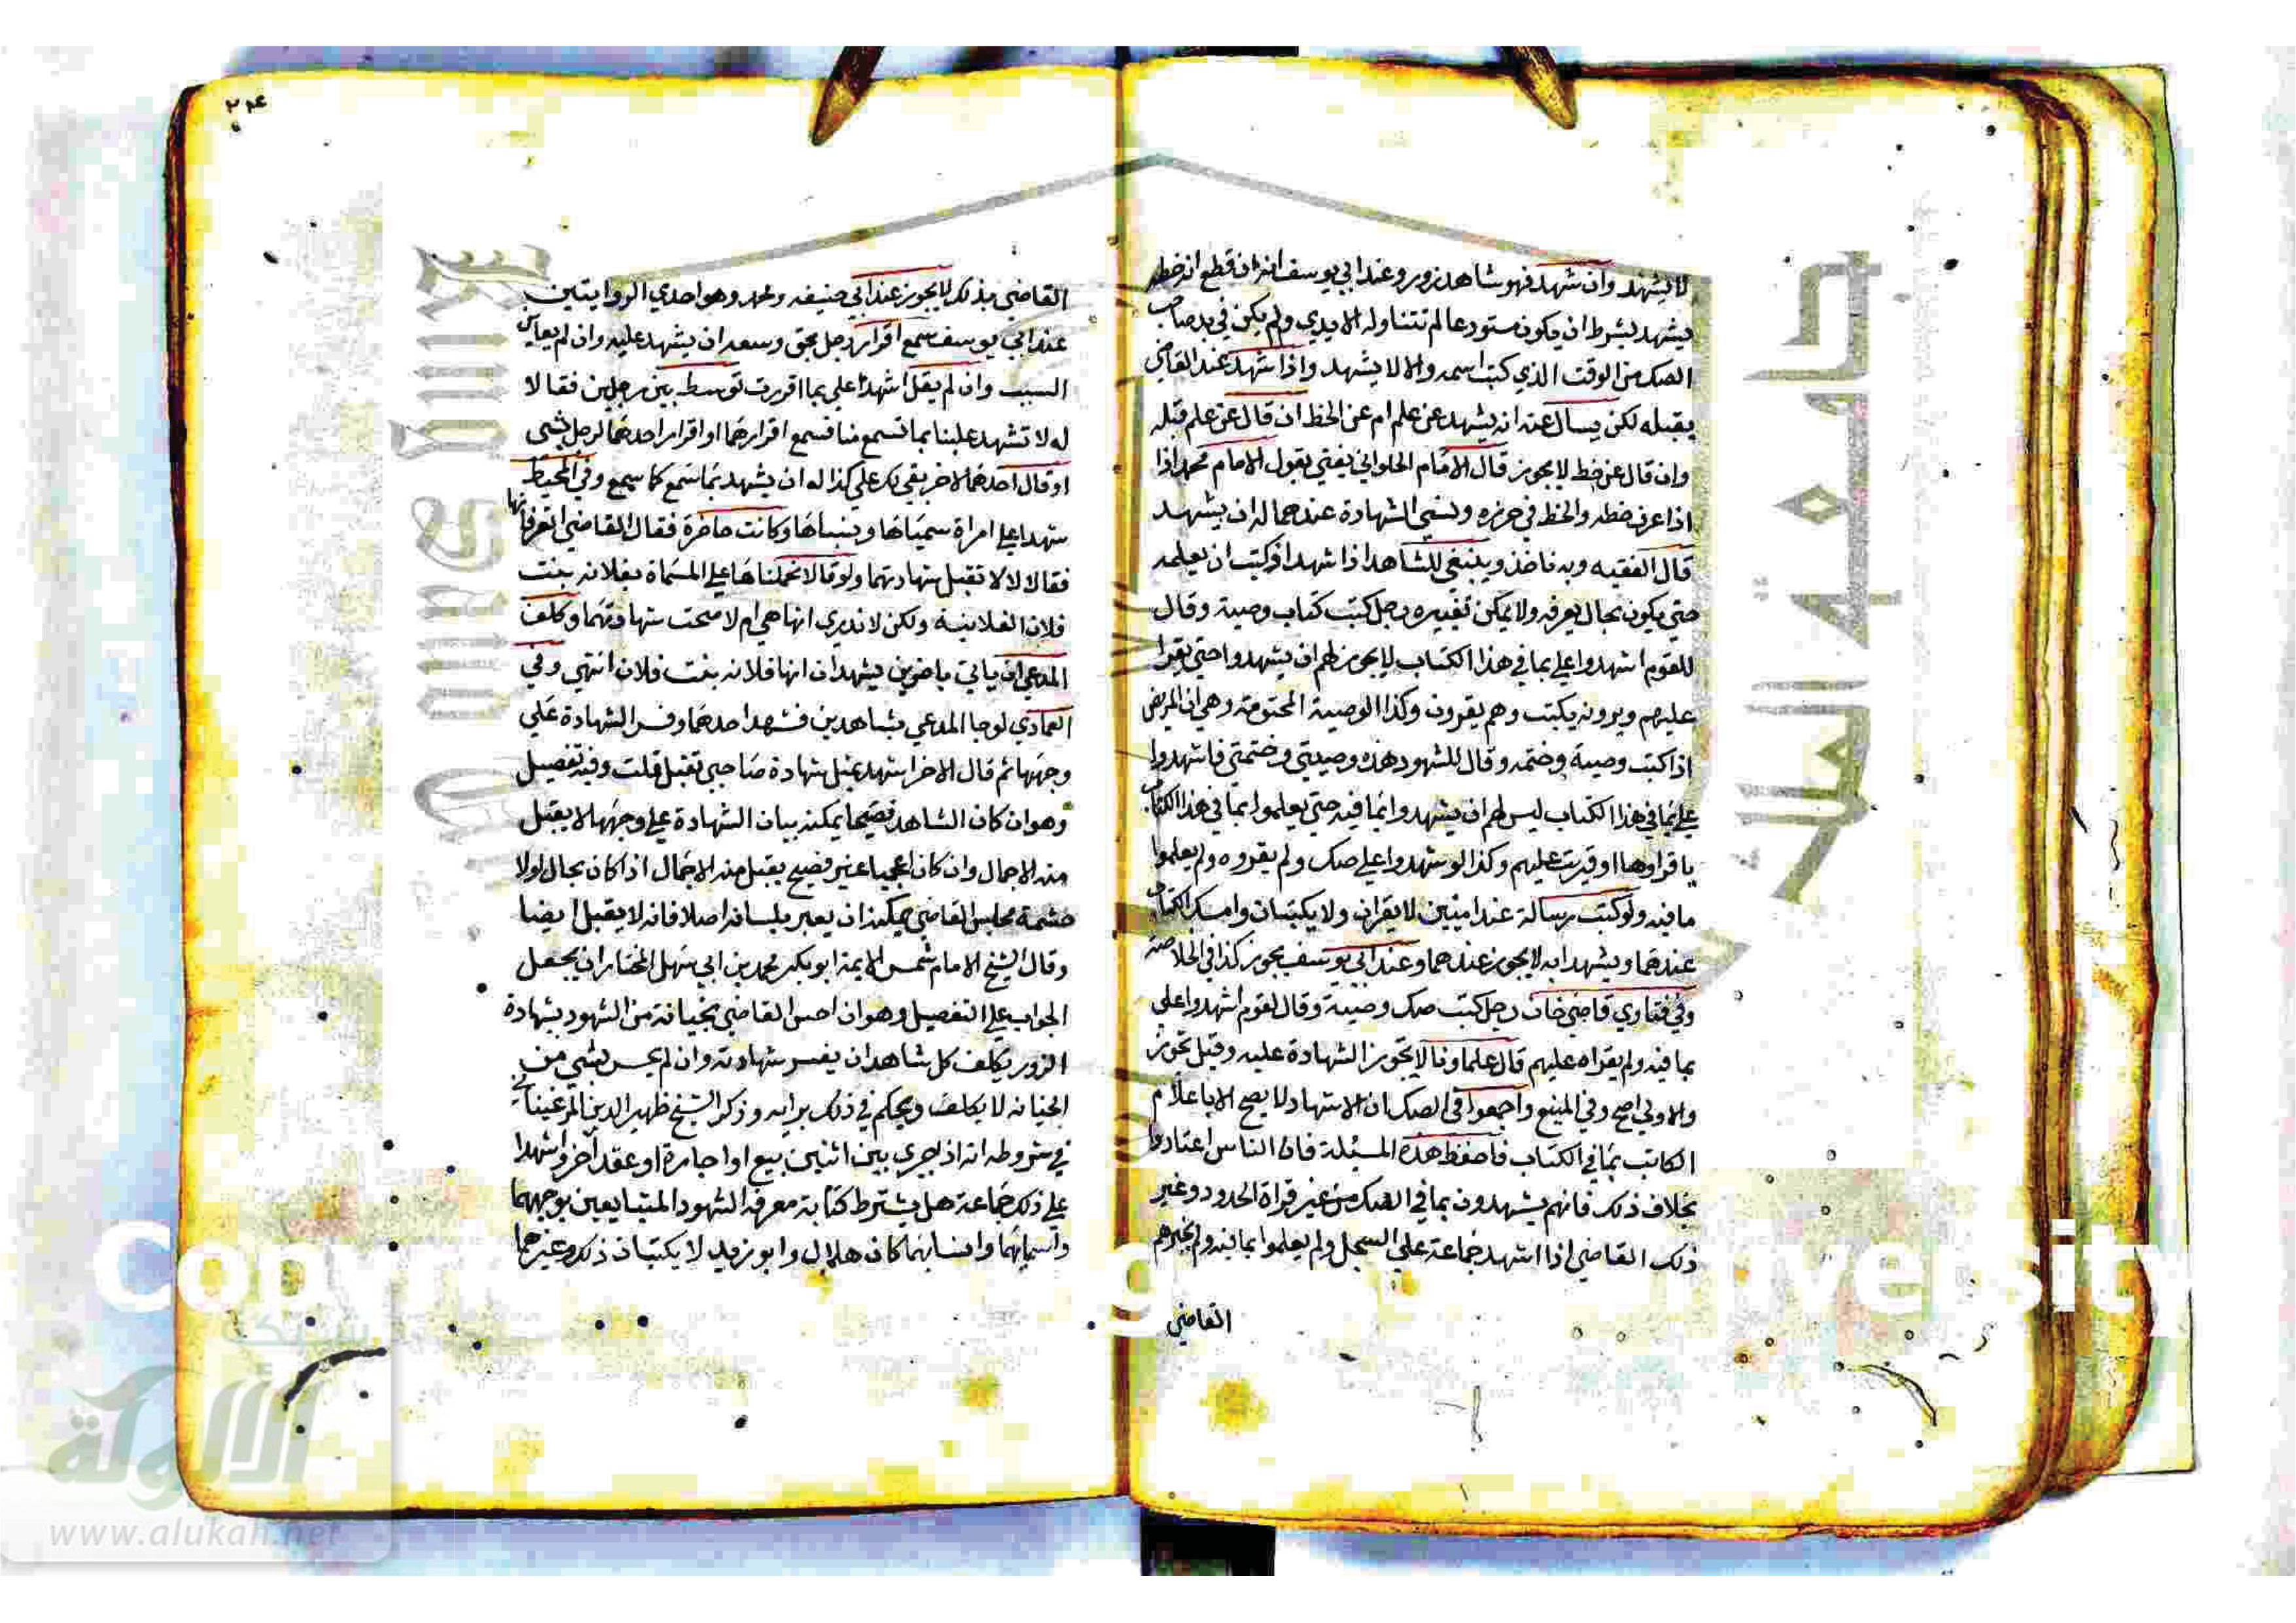 لا يشهد وان شهد فهو شاهد زور وعند ابي يوسف انه ان قطع انه خطه
يشهد بشرط ان يكون مستودعا لم تتناوله الايدي ولم يكن في يد صاحب
الصك من الوقت الذي كتب اسمه والا لا يشهد واذا شهد عند القاضي
يقبله لكن يسال عنه انه يشهد عن علم ام عن الخط ان قال عن علم قبله
وان قال عن خط لا يجوز قال الامام الحلواني يفتي بقول الامام محمد اذا
اذا عرف خطه والخط في حرزه ونسي الشهادة عندهما له ان يشهد
قال الفقيه وبه ناخذ وينبغي للشاهد اذا شهد او كتب ان يعلمه
حتي يكون بحال يعرفه ولا يمكن تغييره رجل كتب كتاب وصية وقال
للقوم اشهدوا علي بما في هذا الكتاب لا يجوز لهم ان يشهدوا حتي يقرا
عليهم ويرونه يكتب وهم يقرون وكذا الوصية المختومة وهي ان المريض
اذا كتب وصية وختمه وقال للشهود هذه وصيتي وختمتي فاشهدوا
علي بما في هذا الكتاب ليس لهم ان يشهدوا بما فيه حتي يعلموا بما في هذا الكتاب
باقراوها او قريت عليهم وكذا لو شهدوا علي صك ولم يقروه ولم يعلموا
ما فيه ولو كتب رسالة عند امينين لا يقران ولا يكتبان وامسك الكتاب
عندهما ويشهدا به لا يجوز عندهما وعند ابي يوسف يجوز كذا في الخلاصة
وفي فتاوي قاضي خان رجل كتب صك وصية وقال لقوم اشهدوا علي
بما فيه ولم يقراه عليهم قال علماونا لا يجوز الشهادة عليه وقيل تجوز
والاولي اصح وفي المنبع واجمعوا في الصك ان الاشهاد لا يصح الا باعلام
الكاتب بما في الكتاب فاحفظ هذه المسئلة فان الناس اعتادوا
بخلاف ذلك فانهم يشهدون بما في الصك من غير قراة الحدود وغير
ذلك القاضي اذا اشهد جماعة علي السجل ولم يعلموا بما فيه ولم يخبرهم
القاضي
٢٣٤
القاضي بذلك لا يجوز عند ابي حنيفه ومحمد وهو احدي الروايتين
عند ابي يوسف سمع اقرار رجل بحق وسعه ان يشهد عليه وان لم يعاين
السبب وان لم يقل اشهدا علي بما اقررت توسط بين رجلين فقالا
له لا تشهد علينا بما تسمع منا فسمع اقرارهما او اقرار احدهما لرجل بشي
او قال احدهما لاخر بقي لك علي كذا له ان يشهد بما سمع كما سمع وفي المحيط
شهدا علي امراة سمياها ونسباها وكانت حاضرة فقال القاضي اتعرفانها
فقالا لا لا تقبل شهادتهما ولو قالا تحملناها علي المسماة بفلانه بنت
فلان الفلانية ولكن لا ندري انها هي ام لا صحت شهادتهما وكلف
المدعي ان ياتي باخرين يشهدان انها فلانه بنت فلان انتهي وفي
العمادي لو جا المدعي بشاهدين فشهد احدهما وفسر الشهادة علي
وجهها ثم قال الاخر اشهد بمثل شهادة صاحبي تقبل قلت وفيه تفصيل
وهو ان كان الشاهد فصيحا يمكنه بيان الشهادة علي وجهها لا يقبل
منه الاجمال وان كان اعجميا غير فصيح يقبل منه الاجمال اذا كان بحال لولا
حشمة مجلس القاضي يمكنه ان يعبر بلسانه اصلا فانه لا يقبل ايضا
وقال الشيخ الامام شمس الايمة ابو بكر محمد بن ابي سهل المختار ان يجعل
الجواب علي التفصيل وهو ان احس القاضي بخيانة من الشهود بشهادة
الزور يكلف كل شاهد ان يفسر شهادته وان لم يحس بشي من
الخيانه لا يكلف ويحكم في ذلك برايه وذكر الشيخ ظهير الدين المرغيناني
في شروطه انه اذا جري بين اثنين بيع او اجارة او عقد آخر واشهدا
علي ذلك جماعة هل يشترط كتابة معرفة الشهود المتبايعين بوجههما
واسمايهما وانسابهما كان هلال وابو زيد لا يكتبان ذلك وغيرهما
جامعة الملك سعود
شبكة
الألوكة
www.alukah.net